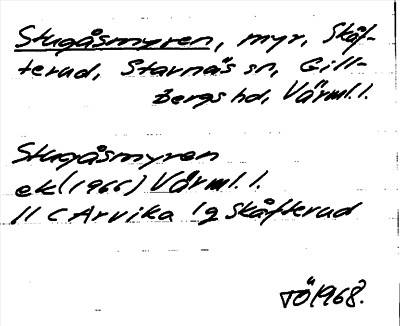 Stugåsmyren, myr, Skåf-
terud, Stavnäs sn, Gill-
bergs hd, Värml. l.
Stugåsmyren
ek (1966) Värml. l.
11 C Arvika 1g Skåfterud
TÖ 1968.